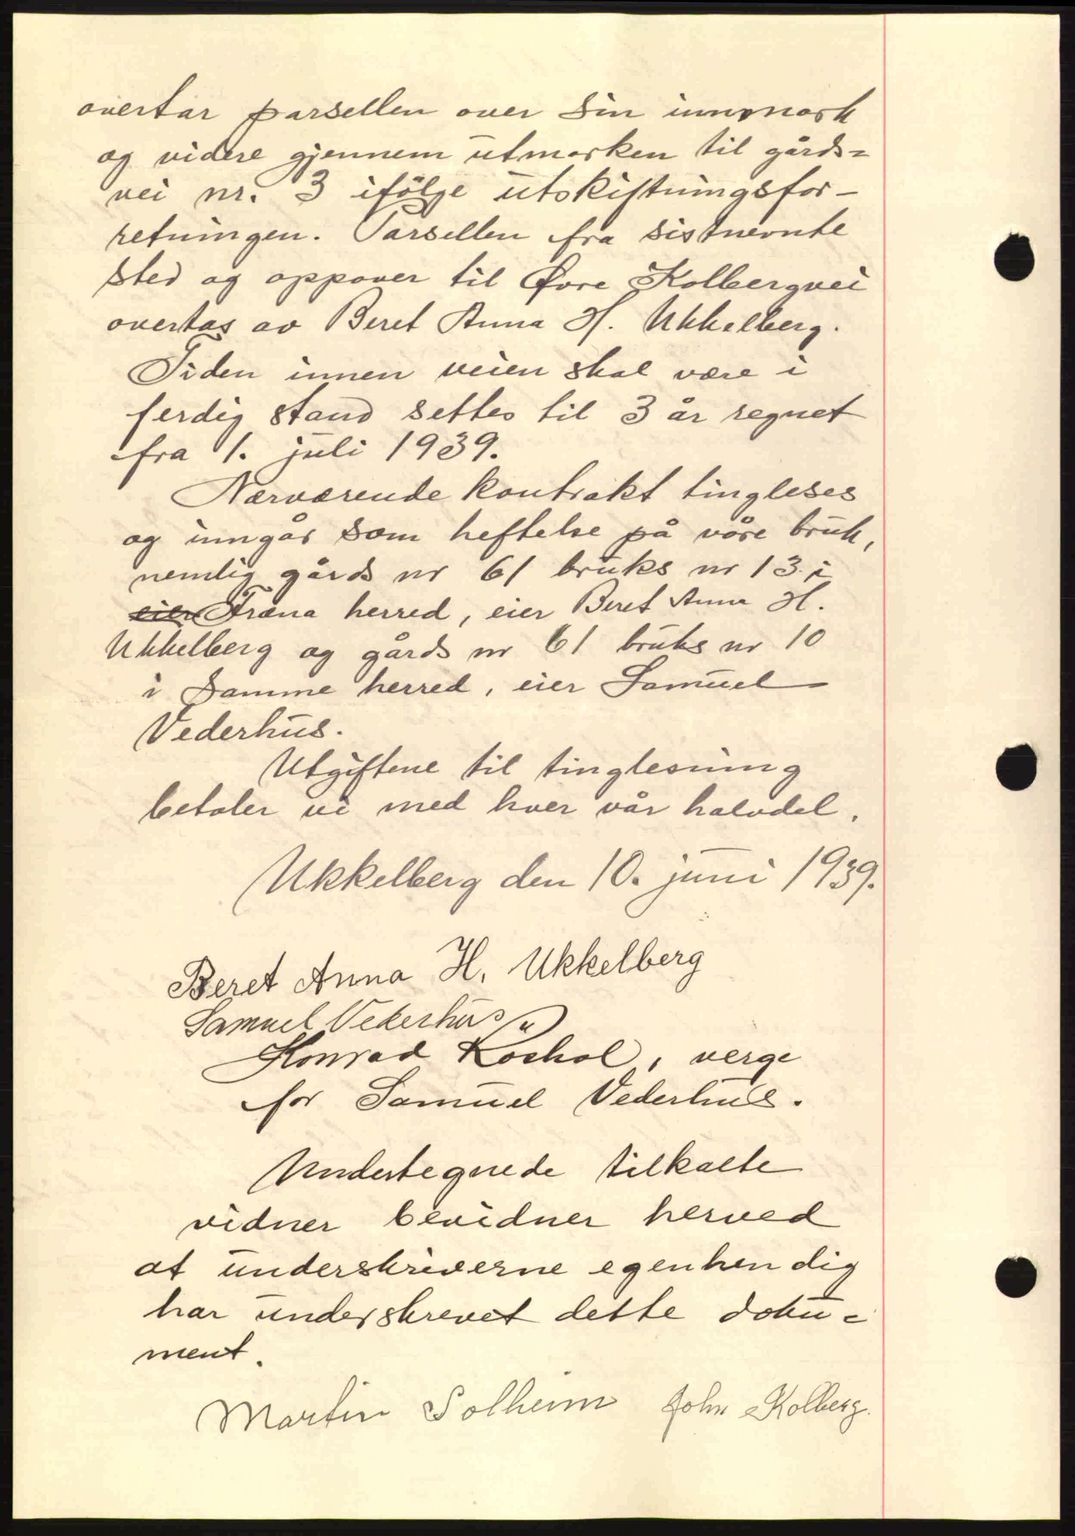 overtar parsellen over sin innmark
og videre gjennem utmarken til gårds=
vei nr. 3 ifölge utskiftningsfor-
retningen. Parsellen fra sistnevnte
sted og oppover til Øvre Kolbergvei
overtas av Beret Anna H. Ukkelberg.
Tiden innen veien skal være i
ferdig stand settes til 3 år regnet
fra 1. juli 1939.
Nærværende kontrakt tingleses
og inngår som heftelse på våre bruk,
nemlig gårds nr 61 bruks nr 13 i
eier Fræna herred, eier Beret Anna H.
Ukkelberg og gårds nr 61 bruks nr 10
i samme herred, eier Samuel
Vederhus.
Utgiftene til tinglesning
betaler vi med hver vår halvdel.
Ukkelberg den 10. juni 1939.
Beret Anna H. Ukkelberg
Samuel Vederhus
Konrad Roshol, verge
for Samuel Vederhus.
Undertegnede tilkalte
vidner bevidner herved
at underskriverne egenhendig
har underskrevet dette doku=
ment.
Martin Solheim John Kolberg.